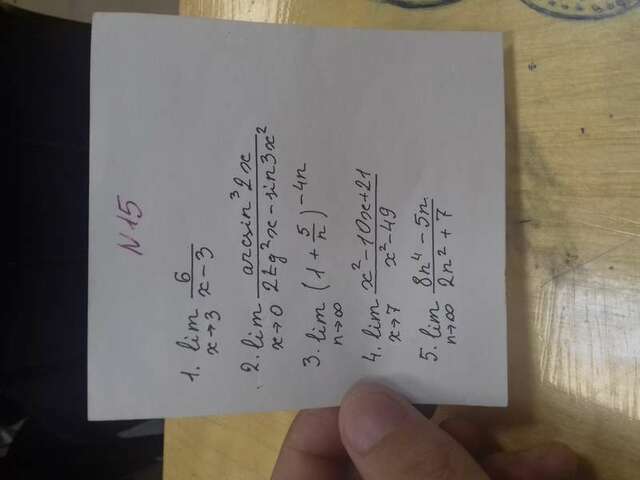 N 15
1. lim x→3 6/(x-3)
2. lim x→0 arcsin³2x/(2tg²x - sin3x²)
3. lim n→∞ (1 + 5/n)^(-4n)
4. lim x→7 (x²-10x+21)/(x²-49)
5. lim n→∞ (8n⁴-5n)/(2n²+7)